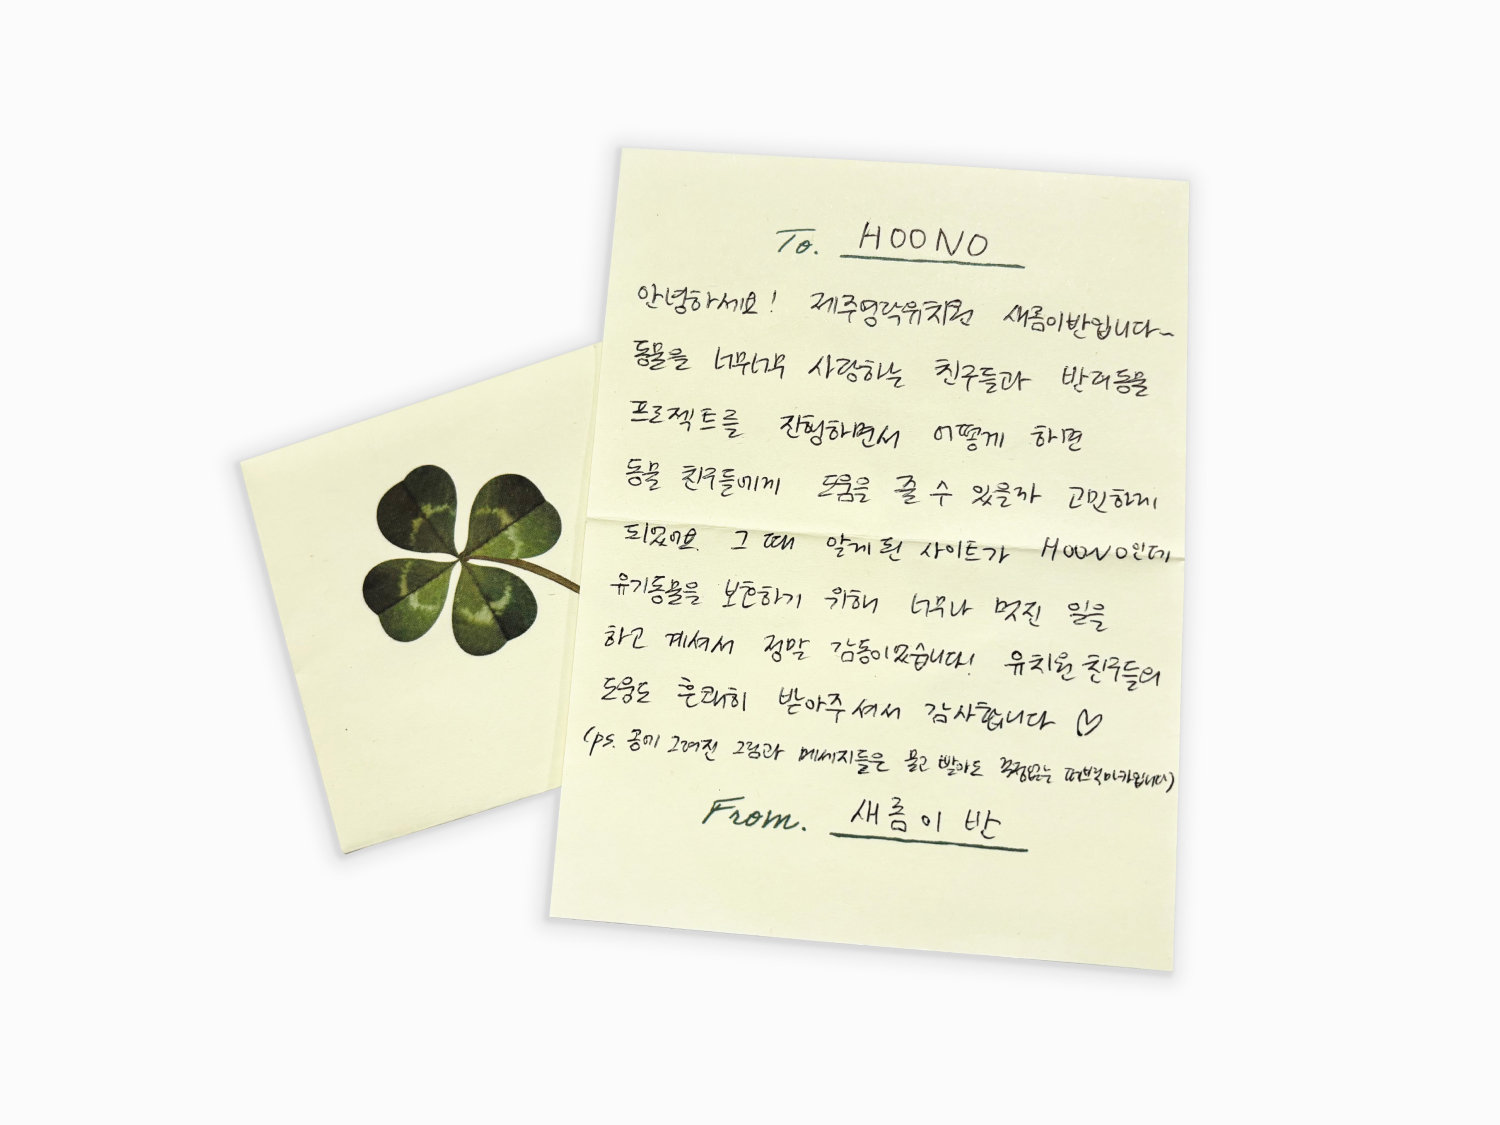 To. HOONO
안녕하세요! 제주영락유치원 새롬이반입니다~
동물을 너무너무 사랑하는 친구들과 반려동물
프로젝트를 진행하면서 어떻게 하면
동물 친구들에게 도움을 줄 수 있을까 고민하게
되었어요. 그 때 알게 된 사이트가 HOONO인데
유기동물을 보호하기 위해 너무나 멋진 일을
하고 계셔서 정말 감동이었습니다! 유치원 친구들의
도움도 흔쾌히 받아주셔서 감사합니다 ♡
(ps. 공에 그려진 그림과 메세지들은 물고 빨아도 걱정없는 패브릭마카입니다)
From. 새롬이 반